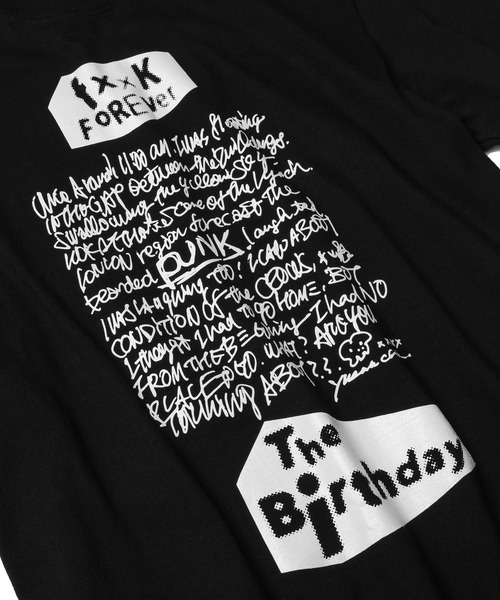 fxxK
FOREVER
Once Around 4:30 am, I was flowing
in the GAP between the buildings.
Swallowing the yellow sky.
some of the
London region forecast the
bearded PUNK laugh and
I was laughing too. I CAN ABOUT
CONDITION OF the
I thought I had to go HOME. BUT
FROM THE BEginning I had NO
PLACE TO GO WHAT? ARE YOU
Talking ABOUT??
The
Birthday